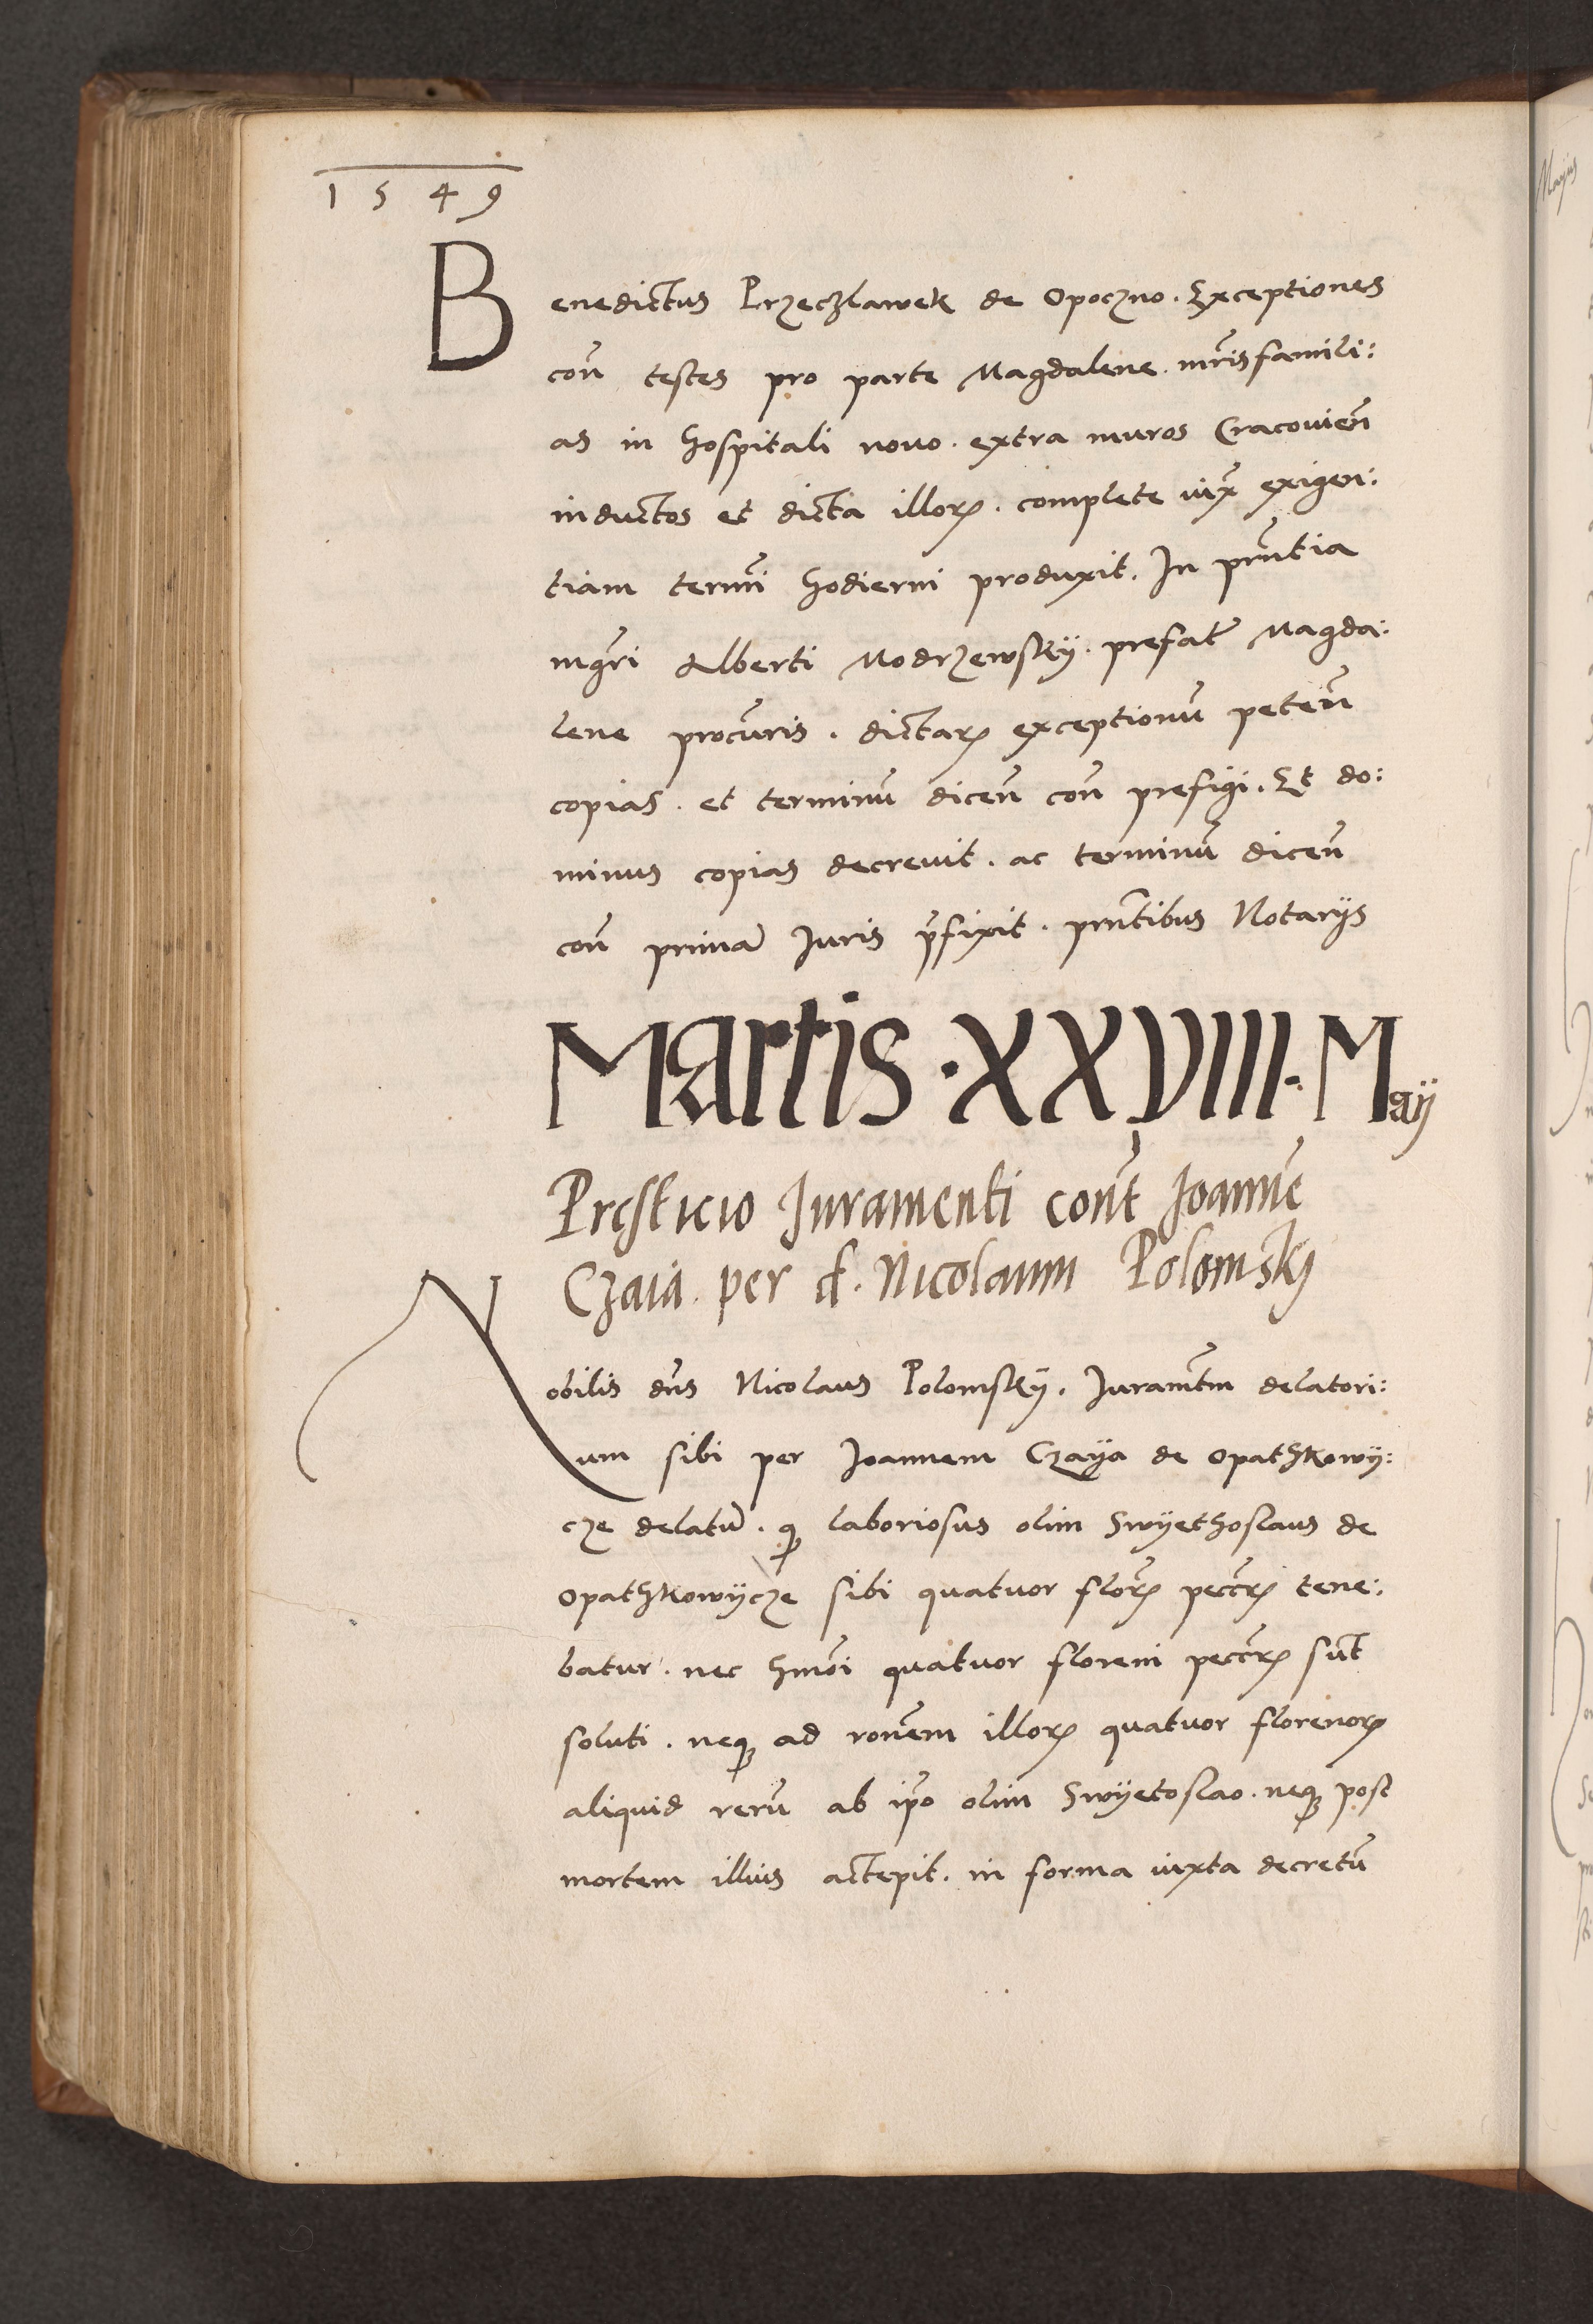 1549
Benedictus Przeczlawek de Opoczno. Exceptiones
con̄ testes pro parte Magdalene. mr̄isfamili:
as in hospitali novo. extra muros Cracovien̄
inductos et dicta illoꝝ. complete iux̄ exigen:
tiam termī hodierni produxit. In pn̄tia
mgr̄i Alberti Modrzewskÿ. prefat̄ Magda:
lene procur̄is. dictaꝝ exceptionū peten̄
copias. et terminū dicen̄ con̄ prefigi. Et do:
minus copias decrevit. ac terminū dicen̄
con̄ primā Juris p̄fixit. pn̄tibus Notarijs
Martis · XXVIII · Maÿ
Presticio Juramenti cont̄ Joannē
Czaia. per d. Nicolaum Polomskÿ
Nobilis dn̄s Nicolaus Polomskÿ. Juramt̄m delatori:
um sibi per Joannem Czaÿa de Opathkowÿ:
cze delatū. qꝫ laboriosus olim Swÿethoslaus de
Opathkowÿcze sibi quatuor floꝝ pecc̄ꝝ tene:
batur. nec hmōi quatuor floreni pecc̄ꝝ sūt
soluti. neqꝫ ad ron̄em illoꝝ quatuor florenoꝝ
aliquid rerū ab ip̄o olim Swÿetoslao. neqꝫ post
mortem illius actepit. in forma iuxta decretū
Mayus